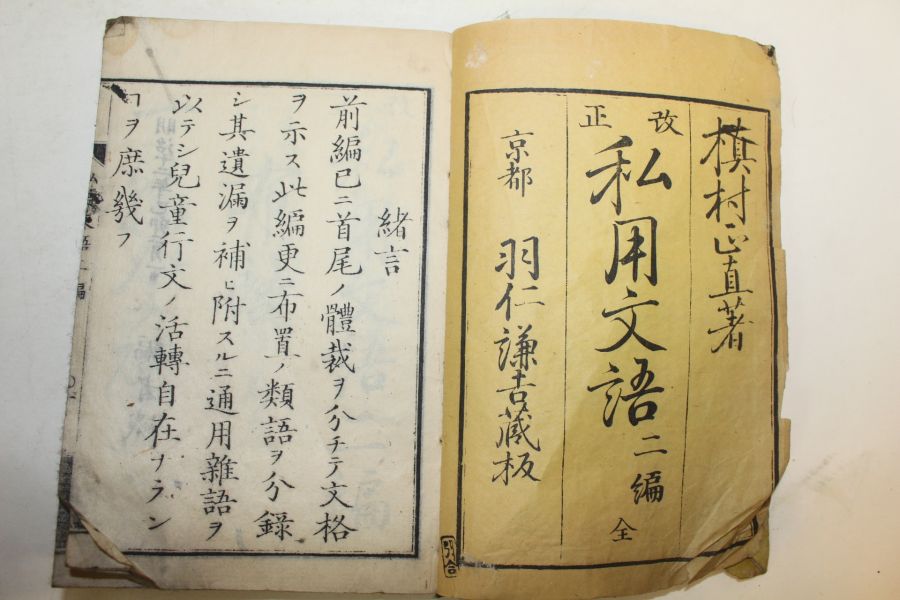 槇村正直著
改正
私用文語二編 全
京都 羽仁謙吉藏板
引合
緒言
前編已ニ首尾ノ體裁ヲ分チテ文格
ヲ示ス此編更ニ布置ノ類語ヲ分錄
シ其遺漏ヲ補ヒ附スルニ通用雜語ヲ
以テシ兒童行文ノ活轉自在ナラン
ヿヲ庶幾フ